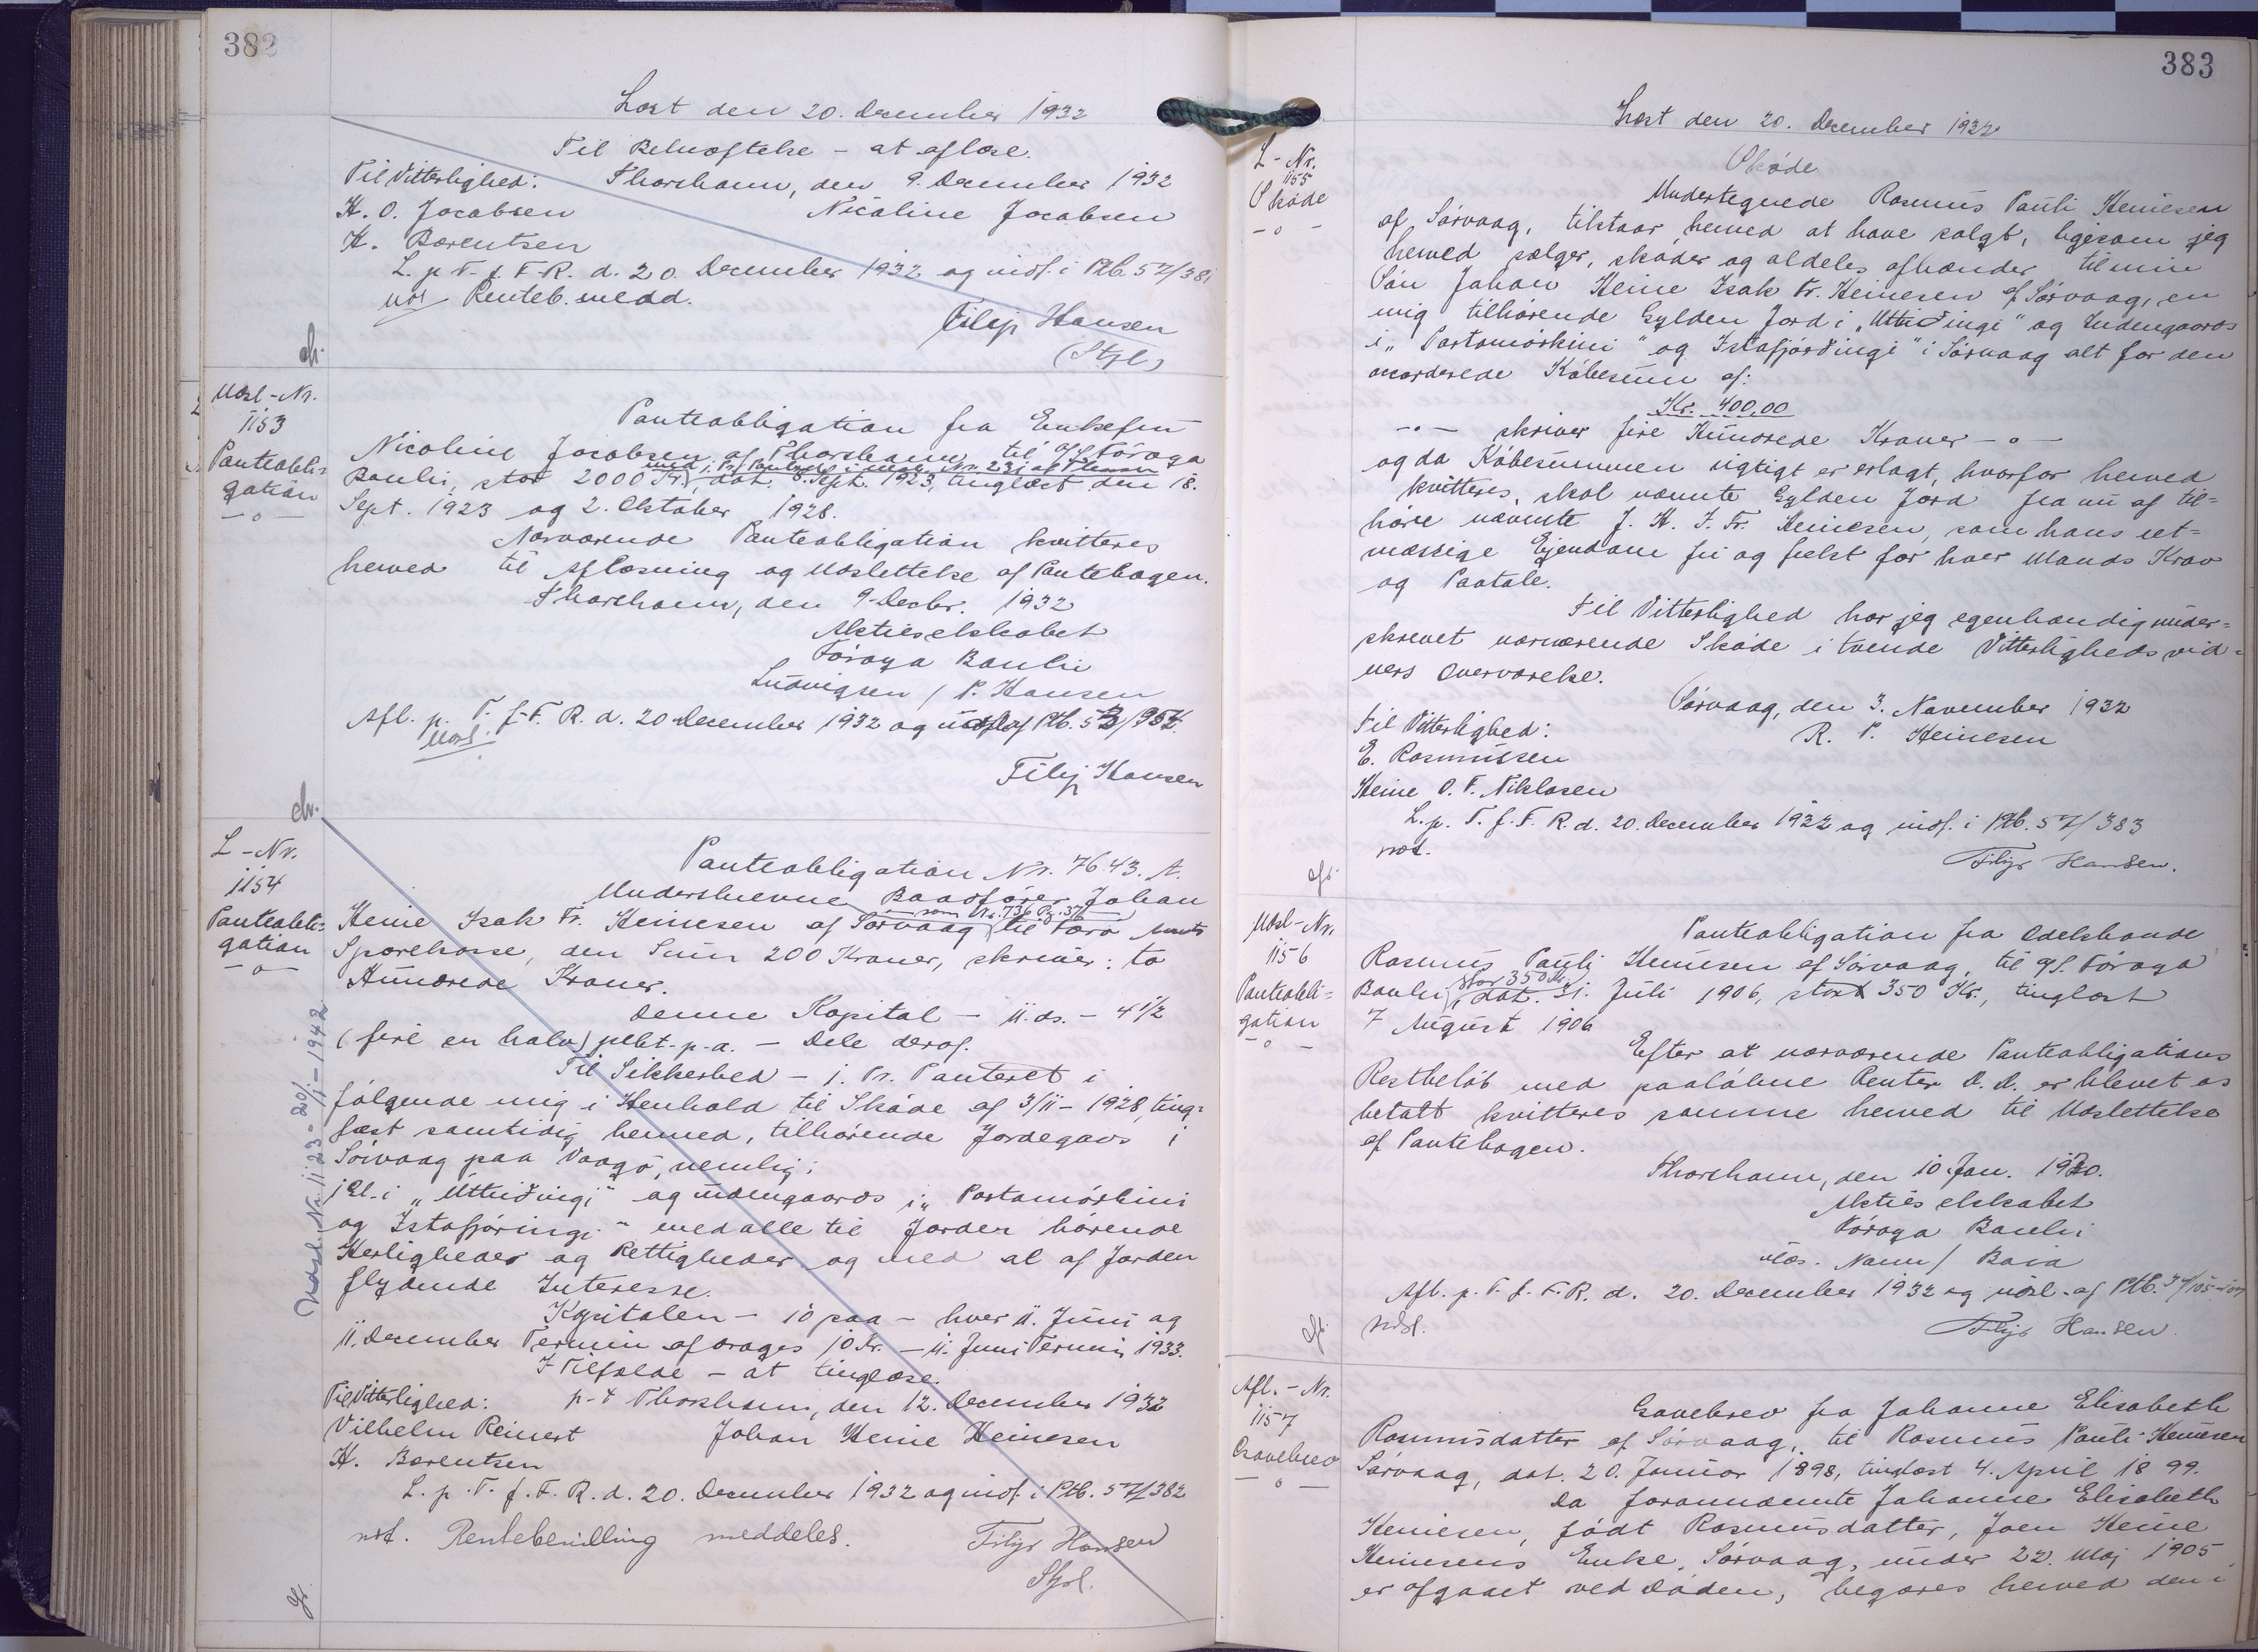 382
Læst den 20. December 1932
Til Bekræftelse - at aflæse.
Til Vitterlighed: Thorshavn, den 9. December 1932
H. O. Jacobsen Nicoline Jacobsen
H. Berentsen
L. p. T. f. F. R. d. 20. December 1932 og indf. i Ptb. 57/381
not Renteb. medd.
Filip Hansen
(Stpl)
Udsl-Nr.
1153
Panteobli=
gation
-o-
Panteobligation fra Enkefru
Nicoline Jacobsen af Thorshavn til A/S Föroya
Banki, stor 2000 Kr., dat. 8. Sept. 1923, tinglæst den 18.
Sept. 1923 og 2. Oktober 1928.
Nærværende Panteobligation kvitteres
herved til Aflæsning og Udslettelse af Pantebogen.
Thorshavn, den 9. Decbr. 1932
Aktieselskabet
Föroya Banki
Ludvigsen / P. Hansen
Afl. p. T. f. F. R. d. 20 December 1932 og udsl. af Ptb.
Udsl.
Filip Hansen
L-Nr.
1154
Panteobli=
gation
-o-
Udsl. Nr. 1123 - 20/1 - 1942
Panteobligation Nr. 7643. A.
Underskrevne Baadfører Johan
som Nr. 736 Pg. 376
Heine Isak Fr. Heinesen af Sørvaag til Færø Amts
Sparekasse, den Sum 200 Kroner, skriver: to
Hundrede Kroner.
Denne Kapital - 11. ds. - 4 1/2
(fire en halv) pCt. p. a. - Dele deraf.
Til Sikkerhed - 1. Pr. Panteret i
følgende mig i Henhold til Skøde af 3/11 - 1928, ting=
læst samtidig hermed, tilhørende Jordegods i
Sørvaag paa Vaagø, nemlig:
1 Gl. i "Uttriðingi" og indengaards i "Partamörkini
og Istafjóringi" med alle til Jorden hørende
Herligheder og Rettigheder og med al af Jorden
flydende Interesse.
Kapitalen - 10 paa - hver 11. Juni og
11. December Termin afdrages 10 Kr. - 11. Juni Termin 1933.
I Tilfælde - at tinglæse.
Til Vitterlighed: p. t. Thorshavn, den 12. December 1932
Vilhelm Reinert Johan Heine Heinesen
H. Berentsen
L. p. T. f. F. R. d. 20. December 1932 og indf. i Ptb. 57/382
not. Rentebevilling meddeles. Filip Hansen
Stpl.
383
Læst den 20. December 1932
L-Nr.
1155
Skøde
-o-
Skøde
Undertegnede Rasmus Pauli Heinesen
af Sørvaag, tilstaar herved at have solgt, ligesom jeg
herved sælger, skøder og aldeles afhænder til min
Søn Johan Heine Isak Fr. Heinesen af Sørvaag, en
mig tilhørende Gylden Jord i "Uttriðingi" og Indengaards
i "Partamörkini" og Istafjórðingi" i Sørvaag alt for den
accorderede Købesum af:
Kr. 400,00
-o- skriver fire Hundrede Kroner -o-
og da Købesummen rigtigt er erlagt, hvorfor herved
kvitteres, skal nævnte Gylden Jord fra nu af til=
høre nævnte J. H. I. Fr. Heinesen, som hans ret=
mæssige Ejendom fri og frelst for hver Mands Krav
og Paatale.
Til Vitterlighed har jeg egenhændig under=
skrevet nærværende Skøde i tvende Vitterlighedsvid=
ners Overværelse.
Sørvaag, den 3. November 1932
Til Vitterlighed: R. P. Heinesen
E. Rasmussen
Heine O. F. Niklasen
L. p. T. f. F. R. d. 20. December 1932 og indf. i Ptb. 57/383
not.
Filip Hansen.
Udsl-Nr.
1156
Panteobli=
gation
-o-
Panteobligation fra Odelsbonde
Rasmus Pauli Heinesen af Sørvaag, til A/S. Föroya
Banki, stor 350 Kr. dat. 31. Juli 1906, stor 350 Kr., tinglæst
7 August 1906
Efter at nærværende Panteobligations
Restbeløb med paaløbne Renter D. D. er blevet os
betalt kvitteres samme herved til Udslettelse
af Pantebogen.
Thorshavn, den 10. Jan. 1930.
Aktieselskabet
Föroya Banki
Afl. p. T. f. F. R. d. 20. December 1932 og udsl. af Ptb.
Udsl.
Filip Hansen.
Afl.-Nr.
1157
Gavebrev
-o-
Gavebrev fra Johanne Elisabeth
Rasmusdatter af Sørvaag, til Rasmus Pauli Heinesen
Sørvaag, dat. 20. Januar 1898, tinglæst 4. April 1899.
Da forannævnte Johanne Elisabeth
Heinesen, født Rasmusdatter, Joen Heine
Heinesens Enke, Sørvaag, under 22. Maj 1905
er afgaaet ved Døden, begæres herved den i